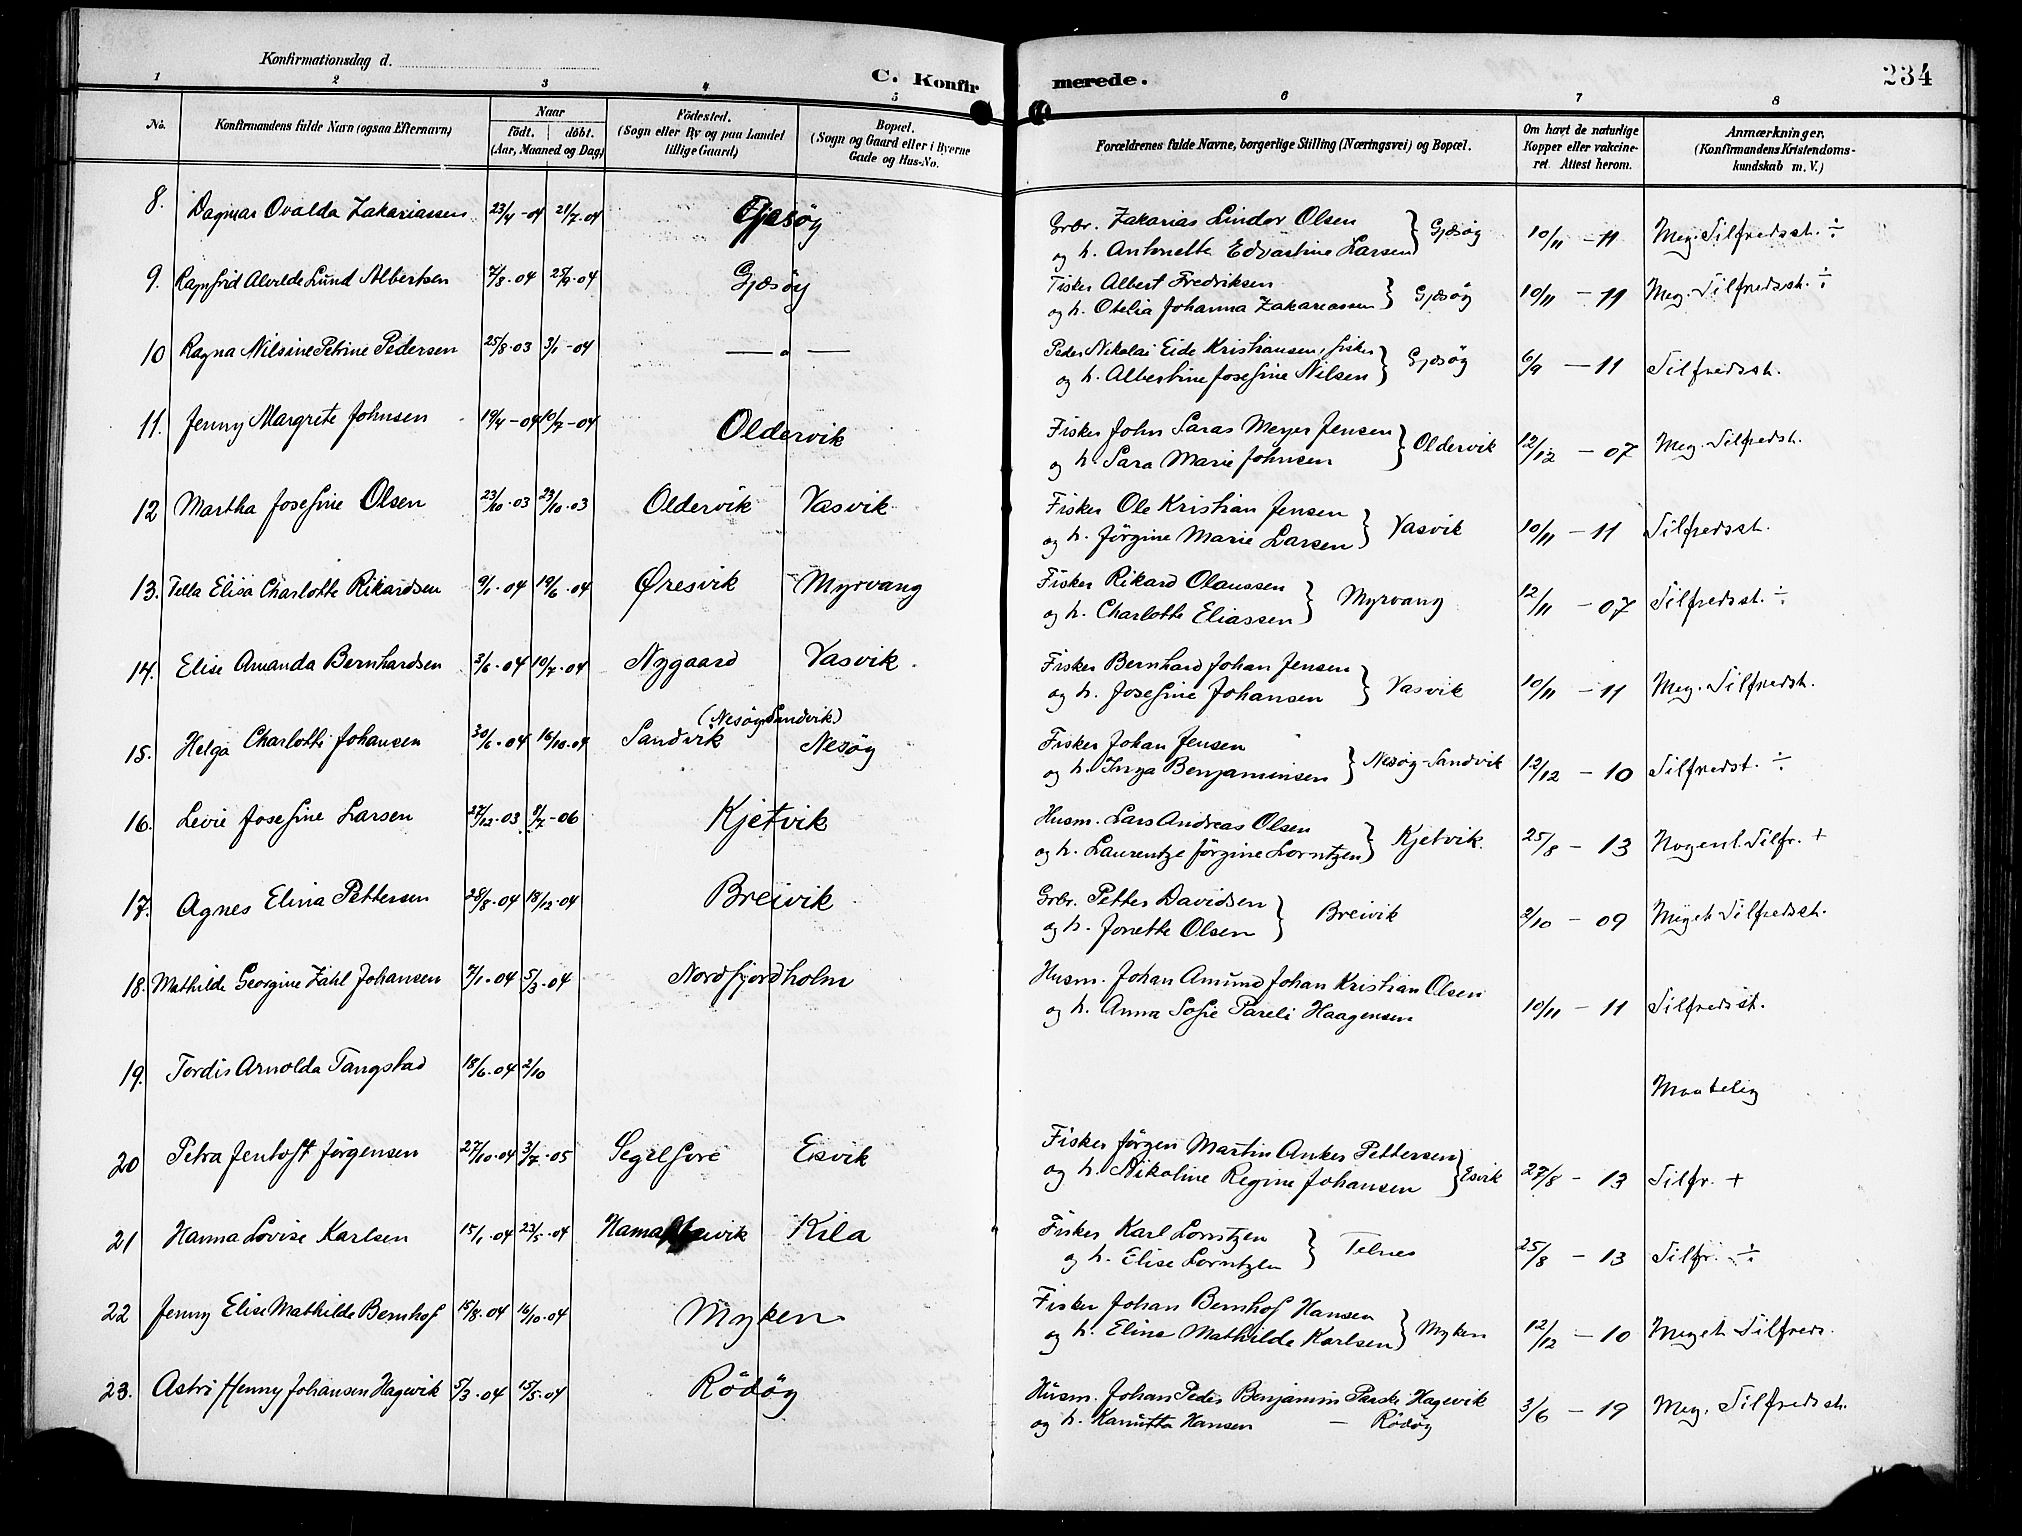 Konfirmationsdag d.
C. Konfirmerede.
234
1 2 3 4 5 6 7 8
No. Konfirmandens fulde Navn (ogsaa Efternavn) Naar födt. döbt. (Aar, Maaned og Dag) Födested. (Sogn eller By og paa Landet tillige Gaard) Bopæl. (Sogn og Gaard eller i Byerne Gade og Hus-No. Forældrenes fulde Navne, borgerlige Stilling (Næringsvei) og Bopæl. Om havt de naturlige Kopper eller vakcineret. Attest herom. Anmærkninger, (Konfirmandens Kristendomskundskab m. V.)
8. Dagmar Ovalda Zakariassen 23/4-04 21/7.04 Gjæsöy Grbr. Zakarias Lindor Olsen
og h. Antonette Edvartine Larsen } Gjæsöy 10/11 - 11 Meg. Tilfredsst. ÷
9. Ragnfrid Alvilde Lund Albertsen 7/8.04 25/9.04 Gjæsöy Fisker Albert Fredriksen
og h. Otelia Johanna Zakariassen } Gjæsöy 10/11 - 11 Meg. Tilfredsst. ÷
10 Ragna Nilsine Petrine Pedersen 25/8.03 3/1-04 — " — Peder Nikolai Eide Kristiansen, fisker
og h. Albertine Josefine Nilsen } Gjæsöy 6/9 - 11 Tilfredsst.
11. Jenny Margrete Johnsen 19/4-04 10/7-04 Oldervik Fisker John Saras Meyer Jensen
og h. Sara Marie Johnsen } Oldervik 12/12 - 07 Meg. Tilfredst.
12 Martha Josefine Olsen 23/10.03 23/10.03 Oldervik Vasvik Fisker Ole Kristian Jensen
og h. Jörgine Marie Larsen } Vasvik 10/11 - 11 Tilfredsst.
13. Tella Elisa Charlotte Rikardsen 9/1.04 19/6.04 Øresvik Myrvang Fisker Rikard Olaussen
og h. Charlotte Eliassen } Myrvang 12/11 - 07 Tilfredsst. ÷
14. Elise Amanda Bernhardsen 3/6.04 10/7.04 Nygaard Vasvik. Fisker Bernhard Johan Jensen
og h. Josefine Johansen } Vasvik 10/11 - 11 Meg. Tilfredst.
15. Helga Charlotte Johansen 30/6.04 16/10.04 Sandvik (Nesöy Sandvik) Nesöy Fisker Johan Jensen
og h. Inga Benjaminsen } Nesöy-Sandvik 12/12 - 10 Tilfredst. ÷
16. Levie Josefine Larsen 27/12.03 9/7-06 Kjetvik Husm. Lars Andreas Olsen
og h. Laurentze Jörgine Lorntzen } Kjetvik. 25/8 - 13 Nogenl. Tilfr. +
17. Agnes Elina Pettersen 28/8.04 18/12.04 Breivik Grbr. Petter Davidsen
og h. Jonette Olsen } Breivik 2/10 - 09 Meget Tilfredsst.
18. Mathilde Georgine Zahl Johansen 7/1.04 5/3.04 Nordfjordholm Husm. Johan Amund Johan Kristian Olsen
og h. Anna Sofie Pareli Haagensen 10/11 - 11 Tilfredsst.
19. Tordis Arnolda Tangstad 18/6.04 2/10 Maatelig
20 Petra Jentoft Jörgensen 27/10.04 3/7.05 Segelfore Esvik Fisker Jörgen Martin Anker Pettersen
og h. Nikoline Regine Johansen } Esvik 27/8 - 13 Tilfr. +
21 Hanna Lovise Karlsen 15/1.04 23/5.04 Kila Fisker Karl Lorntzen
og h. Elise Lorntzen } Telnes 25/8 - 13 Tilfr. ÷
22 Jenny Elise Mathilde Bernhof 15/8.04 16/10.04 Myken Fisker Johan Bernhof Hansen
og h. Elina Mathilde Karlsen } Myken 12/12 - 10 Meget Tilfreds.
23. Astri Henny Johansen Hagevik 5/3.04 15/5.04 Rödöy Husm. Johan Peder Benjamin Parske Hagevik
og h. Kanutta Hansen — Rödöy 3/6 - 19 Meg. Tilfredsst.